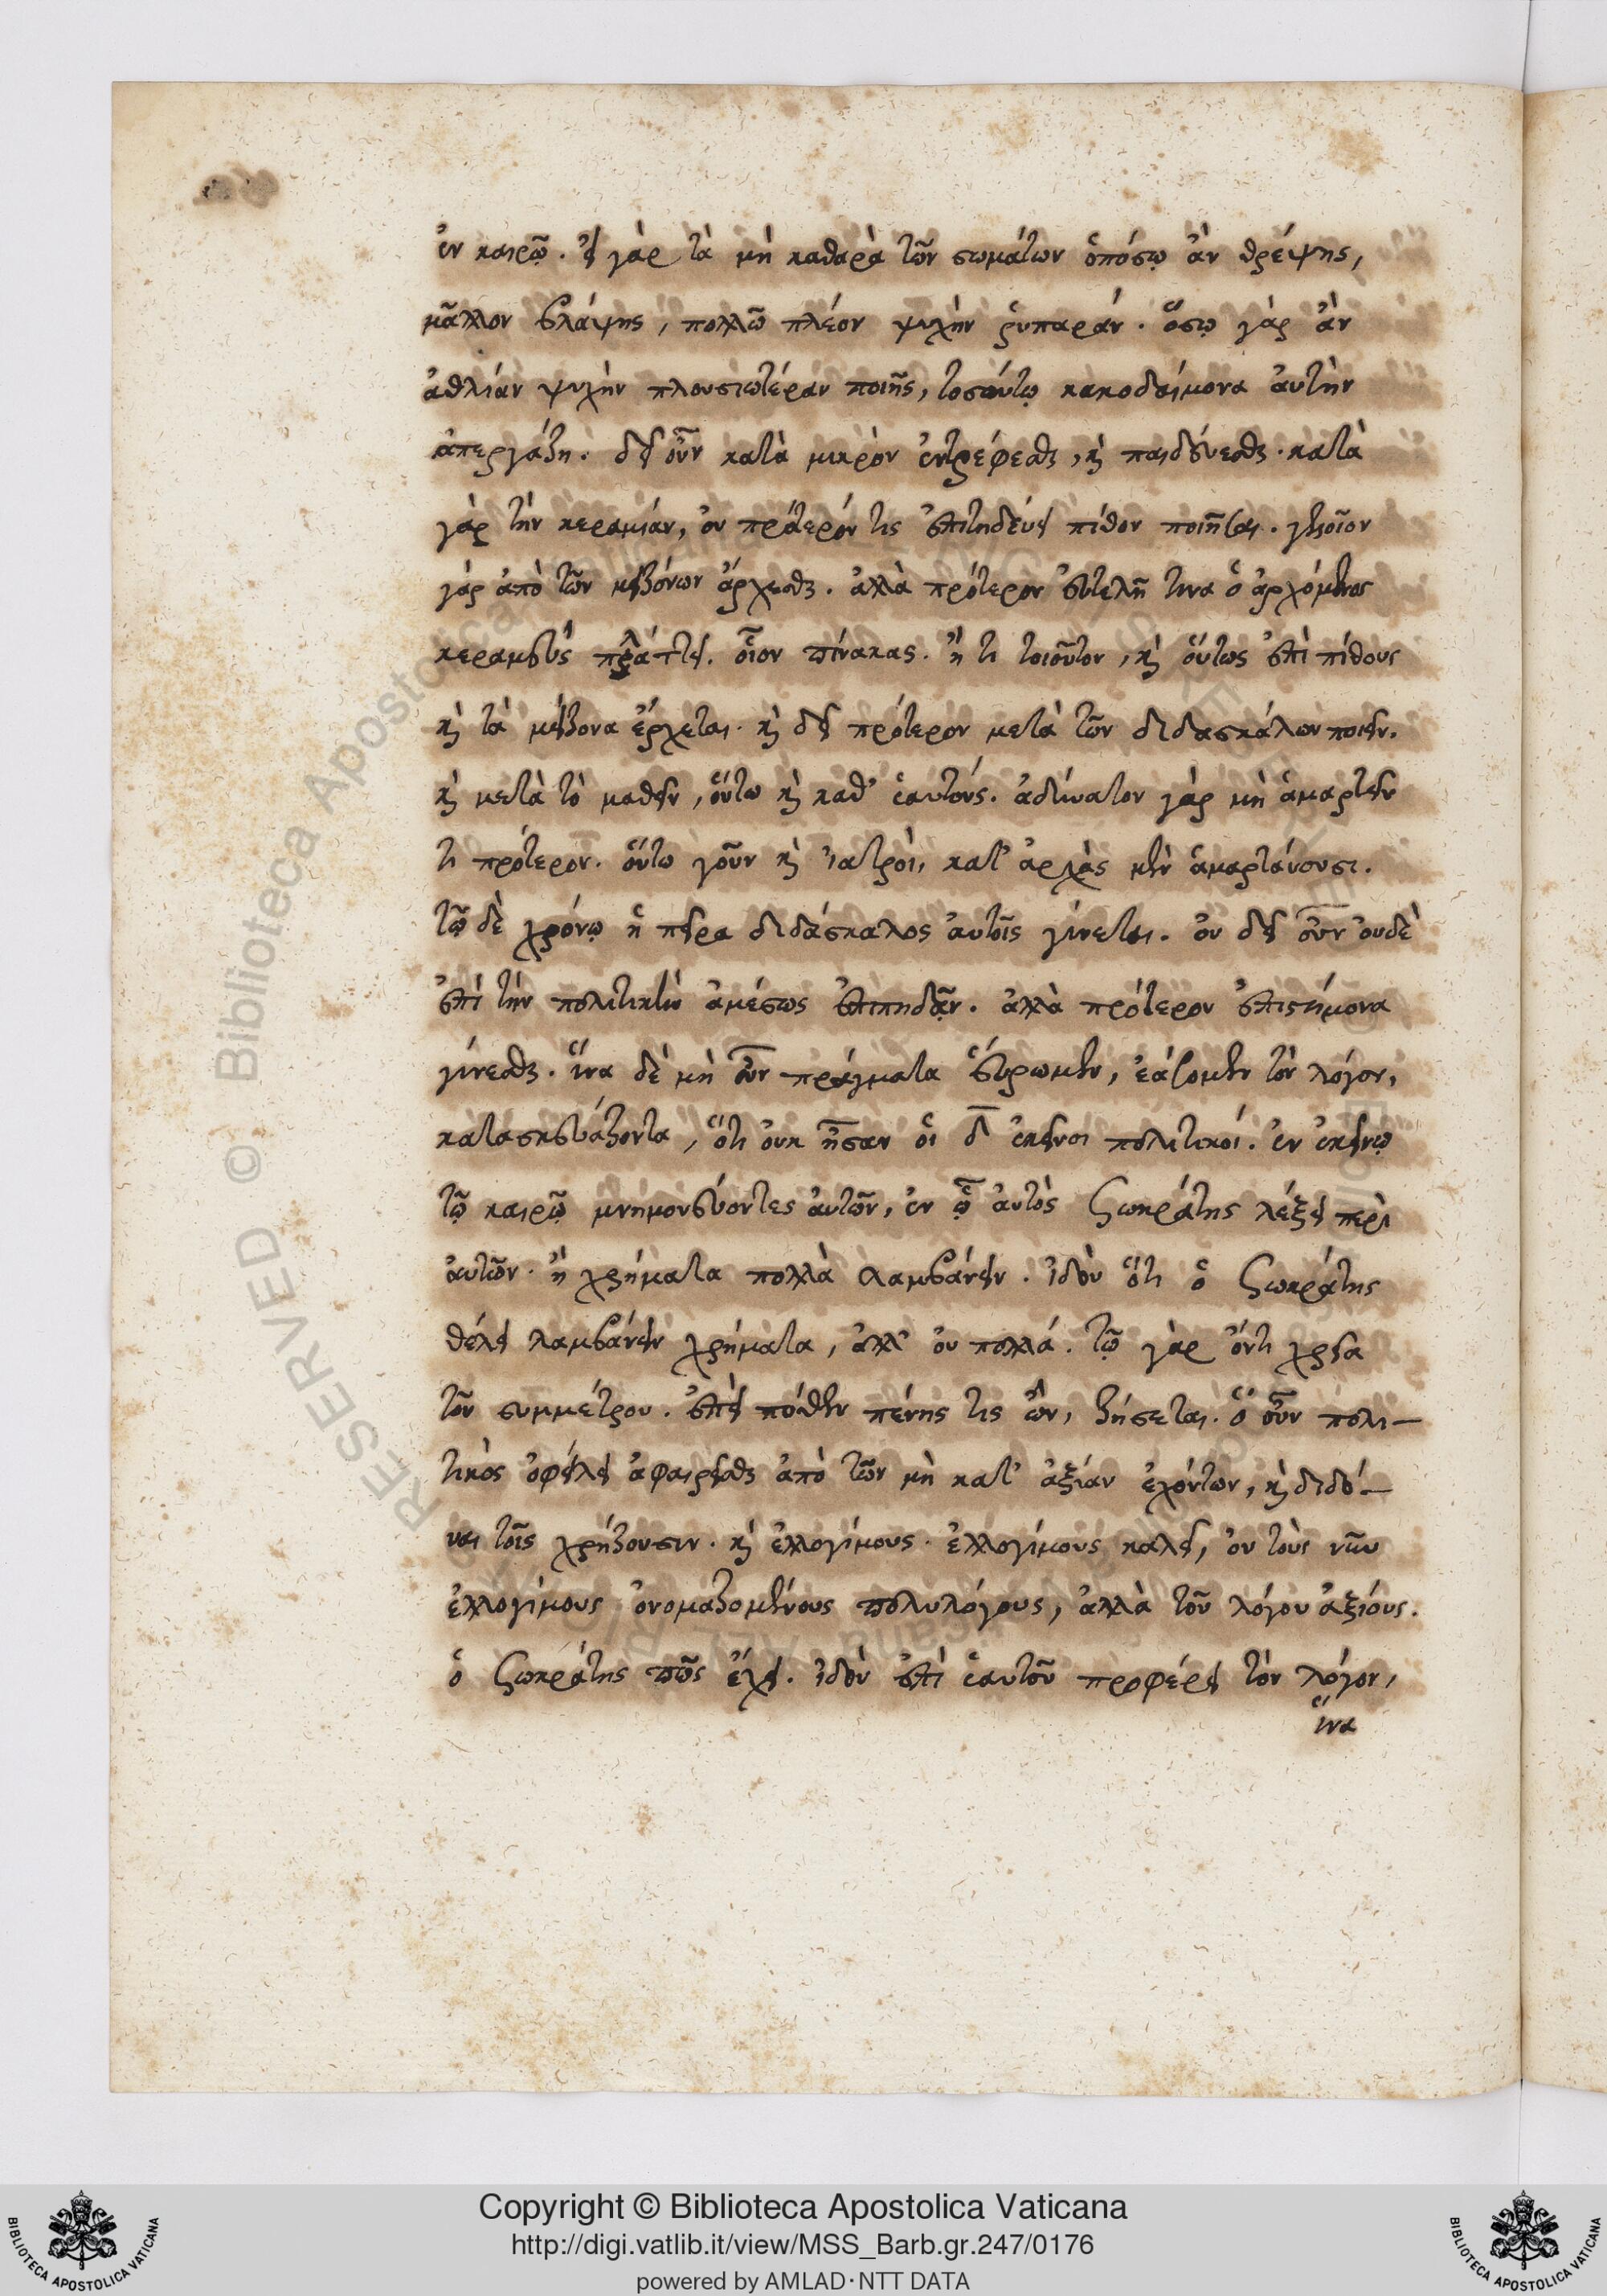 ἐν καιρῷ. εἰ γὰρ τὰ μὴ καθαρὰ τῶν σωμάτων ὁπόσῳ ἂν θρέψης,
μᾶλλον βλάψης, πολλῶ πλέον ψυχὴν ῥυπαράν. ὅσῳ γὰρ ἂν
ἀθλίαν ψυχὴν πλουσιωτέραν ποιῆς, τοσούτῳ κακοδαίμονα ἀυτὴν
ἀπεργάζη. δεῖ οὖν κατὰ μικρὸν ἐντρέφεσθαι, καὶ παιδεύεσθαι. κατὰ
γὰρ τὴν κεραμίαν, ὀυ πρότερόν τις ἐπιτηδεύει πίθον ποιῆσαι. γελοῖον
γὰρ ἀπὸ τῶν μειζόνων ἄρχεσθαι. ἀλλὰ πρότερον ἐυτελῆ τινα ὁ ἀρχόμενος
κεραμεὺς πλάττει. οἷον πίνακας. ἤ τι τοιοῦτον, καὶ οὕτως ἐπὶ πίθους
καὶ τὰ μείζονα ἔρχεται. καὶ δεῖ πρότερον μετὰ τῶν διδασκάλων ποιεῖν.
καὶ μετὰ τὸ μαθεῖν, οὕτω καὶ καθ' ἑαυτούς. ἀδύνατον γὰρ μὴ ἁμαρτεῖν
τι πρότερον. οὕτω γοῦν καὶ ἰατροὶ, κατ' ἀρχὰς μὲν ἁμαρτάνουσι.
τῷ δὲ χρόνῳ ἡ πεῖρα διδάσκαλος ἀυτοῖς γίνεται. ὀυ δεῖ οὖν ὀυδὲ
ἐπὶ τὴν πολιτικὴν ἀμέσως ἐπιπηδᾷν. ἀλλὰ πρότερον ἐπιστήμονα
γίνεσθαι. ἵνα δὲ μὴ οὖν πράγματα εὕρωμεν, ἐάσομεν τὸν λόγον,
κατασκευάζοντα, ὅτι ὀυκ ἦσαν οἱ δ̅ ἐκεῖνοι πολιτικοί. ἐν ἐκείνῳ
τῷ καιρῷ μνημονεύοντες ἀυτῶν, ἐν ᾧ ἀυτὸς Σωκράτης λέξει περὶ
ἀυτῶν. ἢ χρήματα πολλὰ λαμβάνειν. ἰδοὺ ὅτι ὁ Σωκράτης
θέλει λαμβάνειν χρήματα, ἀλλ' ὀυ πολλά. τῷ γὰρ ὄντι χρεία
τοῦ συμμέτρου. ἐπεὶ πόθεν πένης τις ὢν, ζήσεται. ὁ οὖν πολι-
τικὸς ὀφείλει ἀφαιρεῖσθαι ἀπὸ τῶν μὴ κατ' ἀξίαν ἐχόντων, καὶ διδό-
ναι τοῖς χρήζουσιν. καὶ ἐλλογίμους. ἐλλογίμους καλεῖ, ὀυ τοὺς νῦν
ἐλλογίμους ὀνομαζομένους πολυλόγους, ἀλλὰ τοῦ λόγου ἀξίους.
ὁ Σωκράτης πῶς ἔχει. ἰδοὺ ἐπὶ ἑαυτοῦ προφέρει τὸν λόγον,
ἵνα
RESERVED © Biblioteca Apostolica
Copyright © Biblioteca Apostolica Vaticana
http://digi.vatlib.it/view/MSS_Barb.gr.247/0176
powered by AMLAD·NTT DATA
BIBLIOTECA APOSTOLICA VATICANA
BIBLIOTECA APOSTOLICA VATICANA